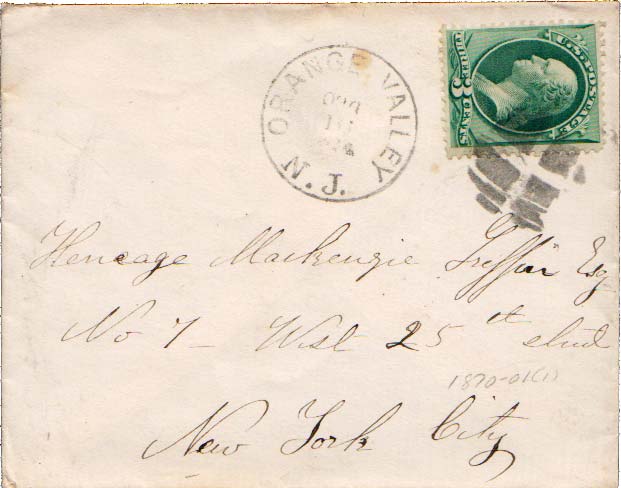 ORANGE VALLEY
N.J.
U.S. POSTAGE
THREE 3 CENTS
Heneage Mackenzie Griffin Esq
No 7 West 25th street
1870-01(1)
New York City